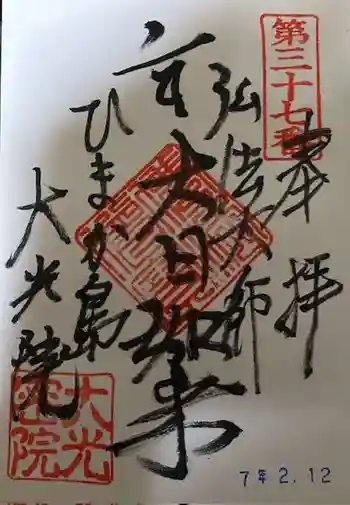 第三十七番
奉拝
弘法大師
大日如来
ひまか島
大光院
大光院
7年2.12